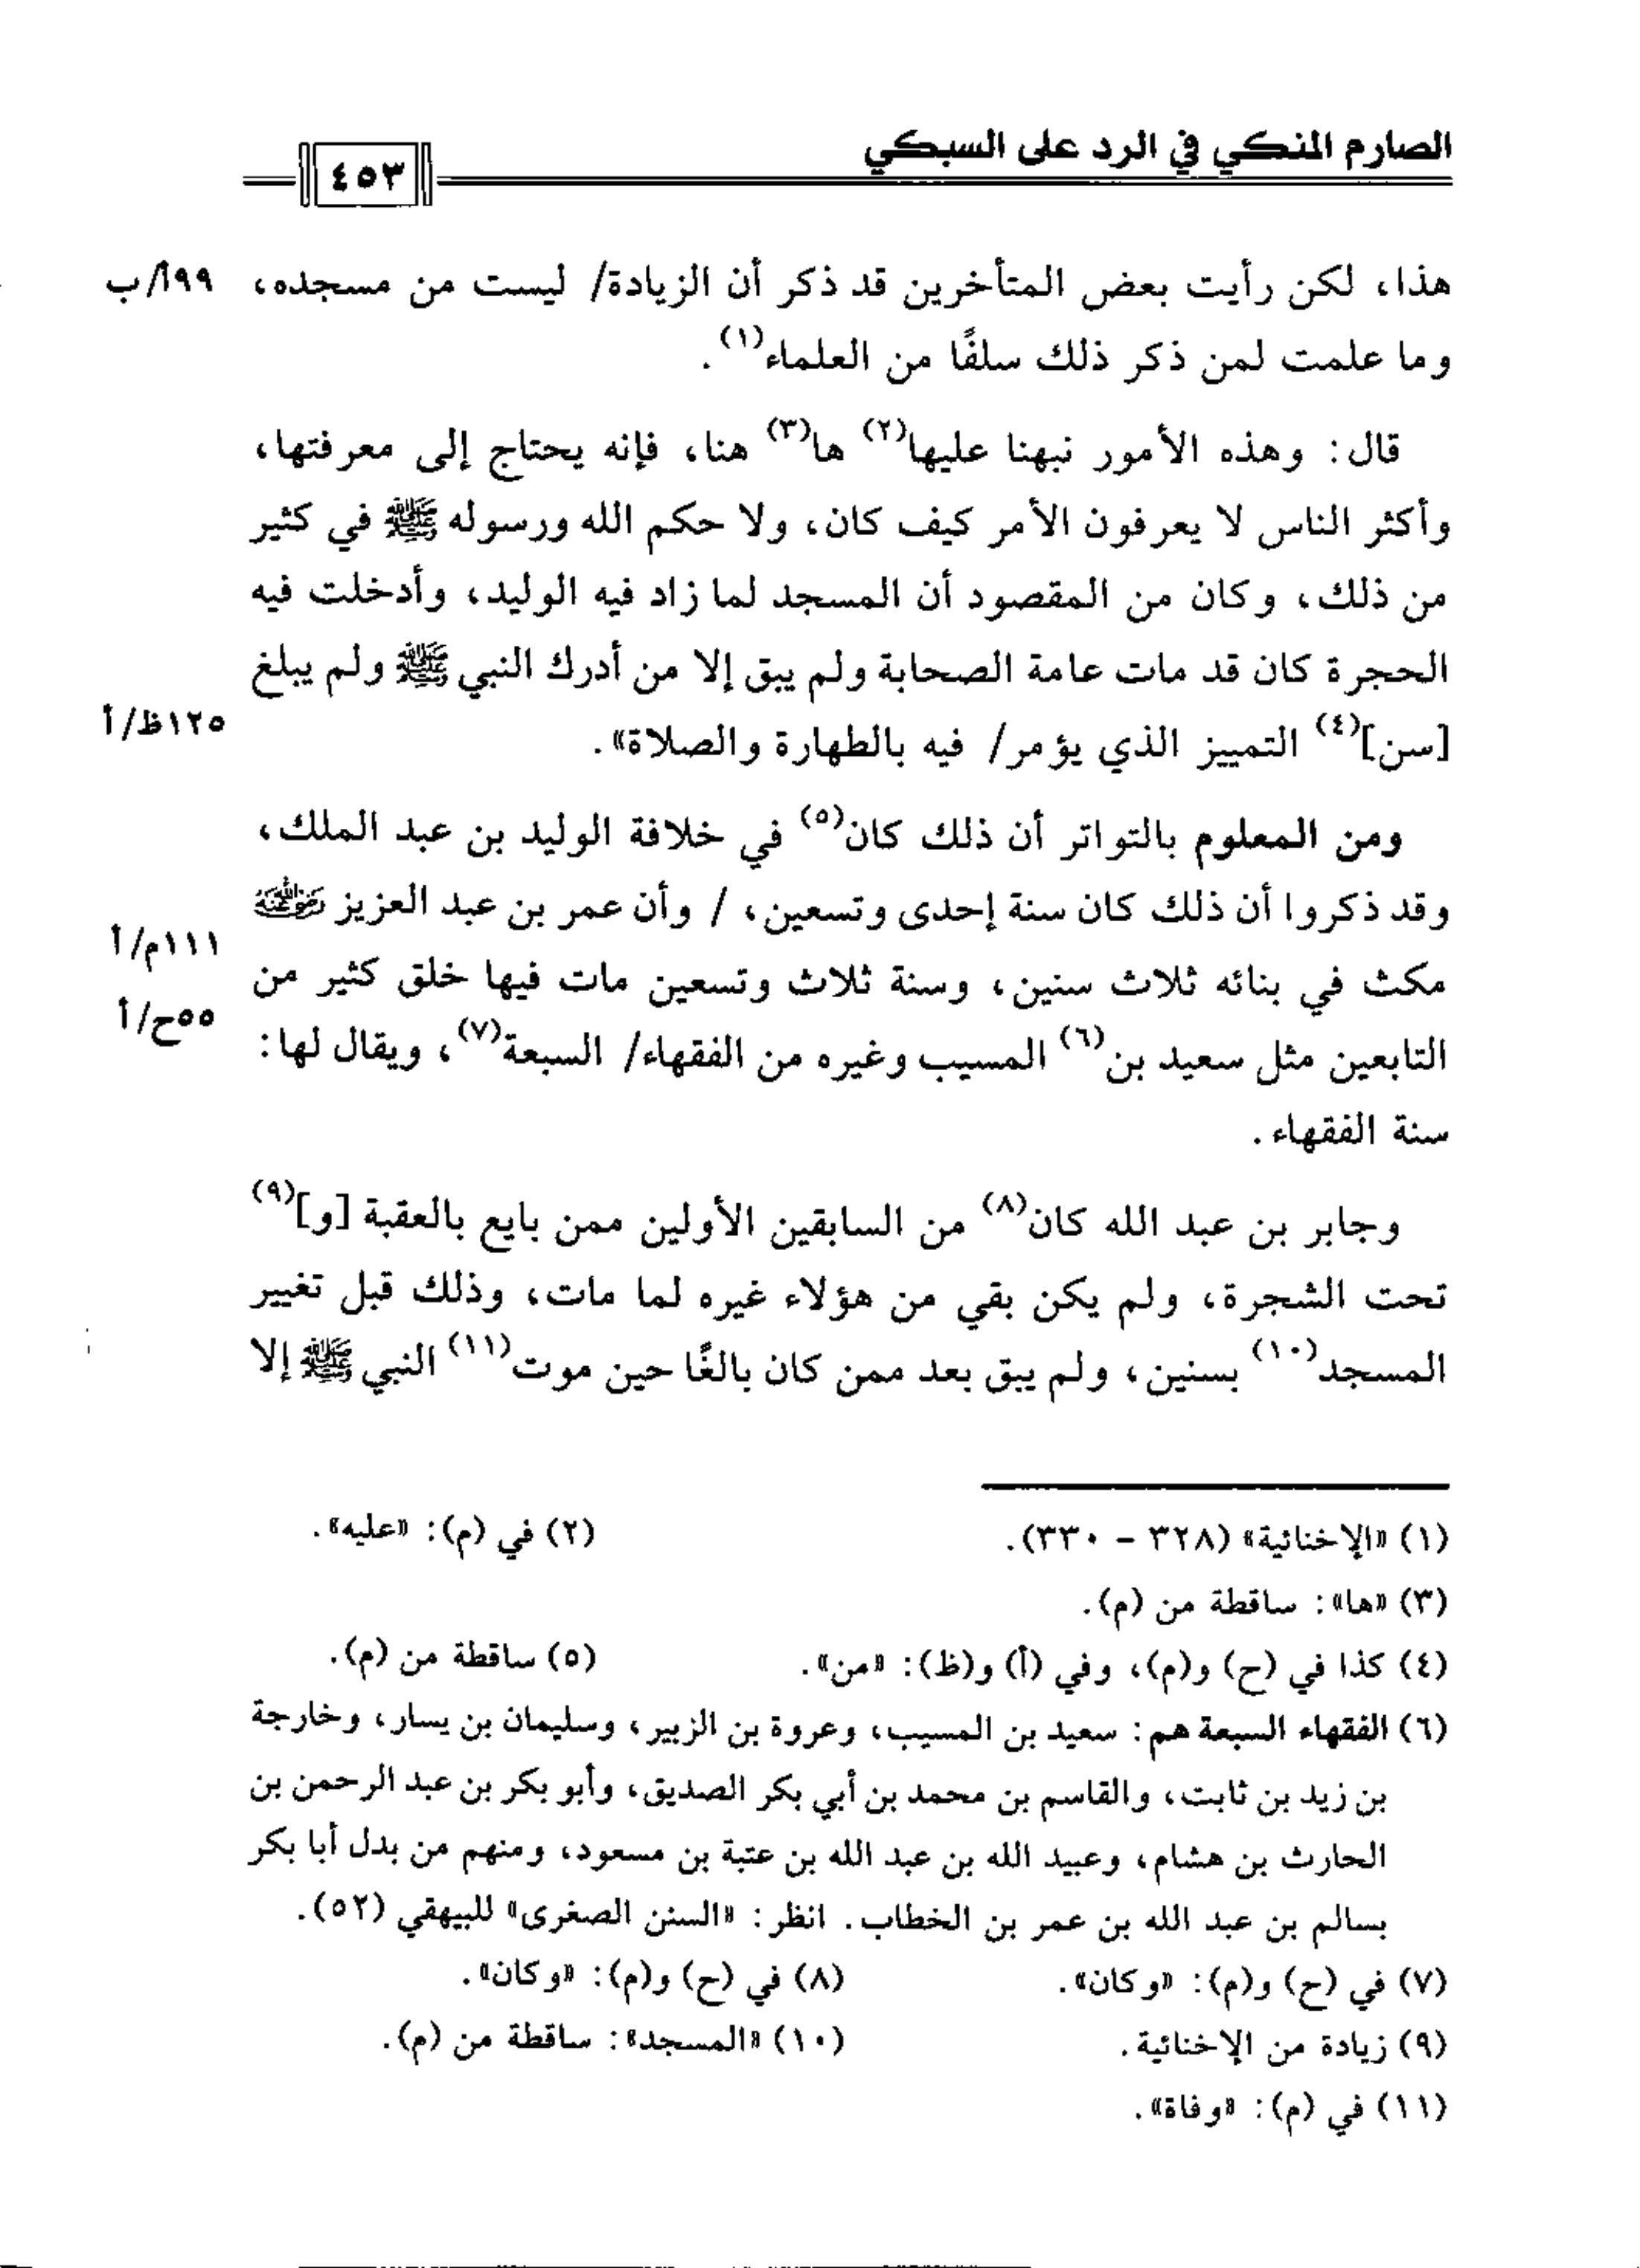 الصارم المنكي في الرد على السبكي
٤٥٣
هذا، لكن رأيت بعض المتأخرين قد ذكر أن الزيادة/ ليست من مسجده، ٩٩أ/ب
وما علمت لمن ذكر ذلك سلفًا من العلماء(١).
قال: وهذه الأمور نبهنا عليها(٢) ها(٣) هنا، فإنه يحتاج إلى معرفتها،
وأكثر الناس لا يعرفون الأمر كيف كان، ولا حكم الله ورسوله ﷺ في كثير
من ذلك، وكان من المقصود أن المسجد لما زاد فيه الوليد، وأدخلت فيه
الحجرة كان قد مات عامة الصحابة ولم يبق إلا من أدرك النبي ﷺ ولم يبلغ
[سن](٤) التمييز الذي يؤمر/ فيه بالطهارة والصلاة». ١٢٥ظ/أ
ومن المعلوم بالتواتر أن ذلك كان(٥) في خلافة الوليد بن عبد الملك،
وقد ذكروا أن ذلك كان سنة إحدى وتسعين، / وأن عمر بن عبد العزيز رضي الله عنه ١١١م/أ
مكث في بنائه ثلاث سنين، وسنة ثلاث وتسعين مات فيها خلق كثير من
التابعين مثل سعيد بن(٦) المسيب وغيره من الفقهاء/ السبعة(٧)، ويقال لها: ٥٥ح/أ
سنة الفقهاء.
وجابر بن عبد الله كان(٨) من السابقين الأولين ممن بايع بالعقبة [و](٩)
تحت الشجرة، ولم يكن بقي من هؤلاء غيره لما مات، وذلك قبل تغيير
المسجد(١٠) بسنين، ولم يبق بعد ممن كان بالغًا حين موت(١١) النبي ﷺ إلا
(١) «الإخنائية» (٣٢٨ - ٣٣٠). (٢) في (م): «عليه».
(٣) «ها»: ساقطة من (م).
(٤) كذا في (ح) و(م)، وفي (أ) و(ظ): «من». (٥) ساقطة من (م).
(٦) الفقهاء السبعة هم: سعيد بن المسيب، وعروة بن الزبير، وسليمان بن يسار، وخارجة
بن زيد بن ثابت، والقاسم بن محمد بن أبي بكر الصديق، وأبو بكر بن عبد الرحمن بن
الحارث بن هشام، وعبيد الله بن عبد الله بن عتبة بن مسعود، ومنهم من بدل أبا بكر
بسالم بن عبد الله بن عمر بن الخطاب. انظر: «السنن الصغرى» للبيهقي (٥٢).
(٧) في (ح) و(م): «وكان». (٨) في (ح) و(م): «وكان».
(٩) زيادة من الإخنائية. (١٠) «المسجد»: ساقطة من (م).
(١١) في (م): «وفاة».